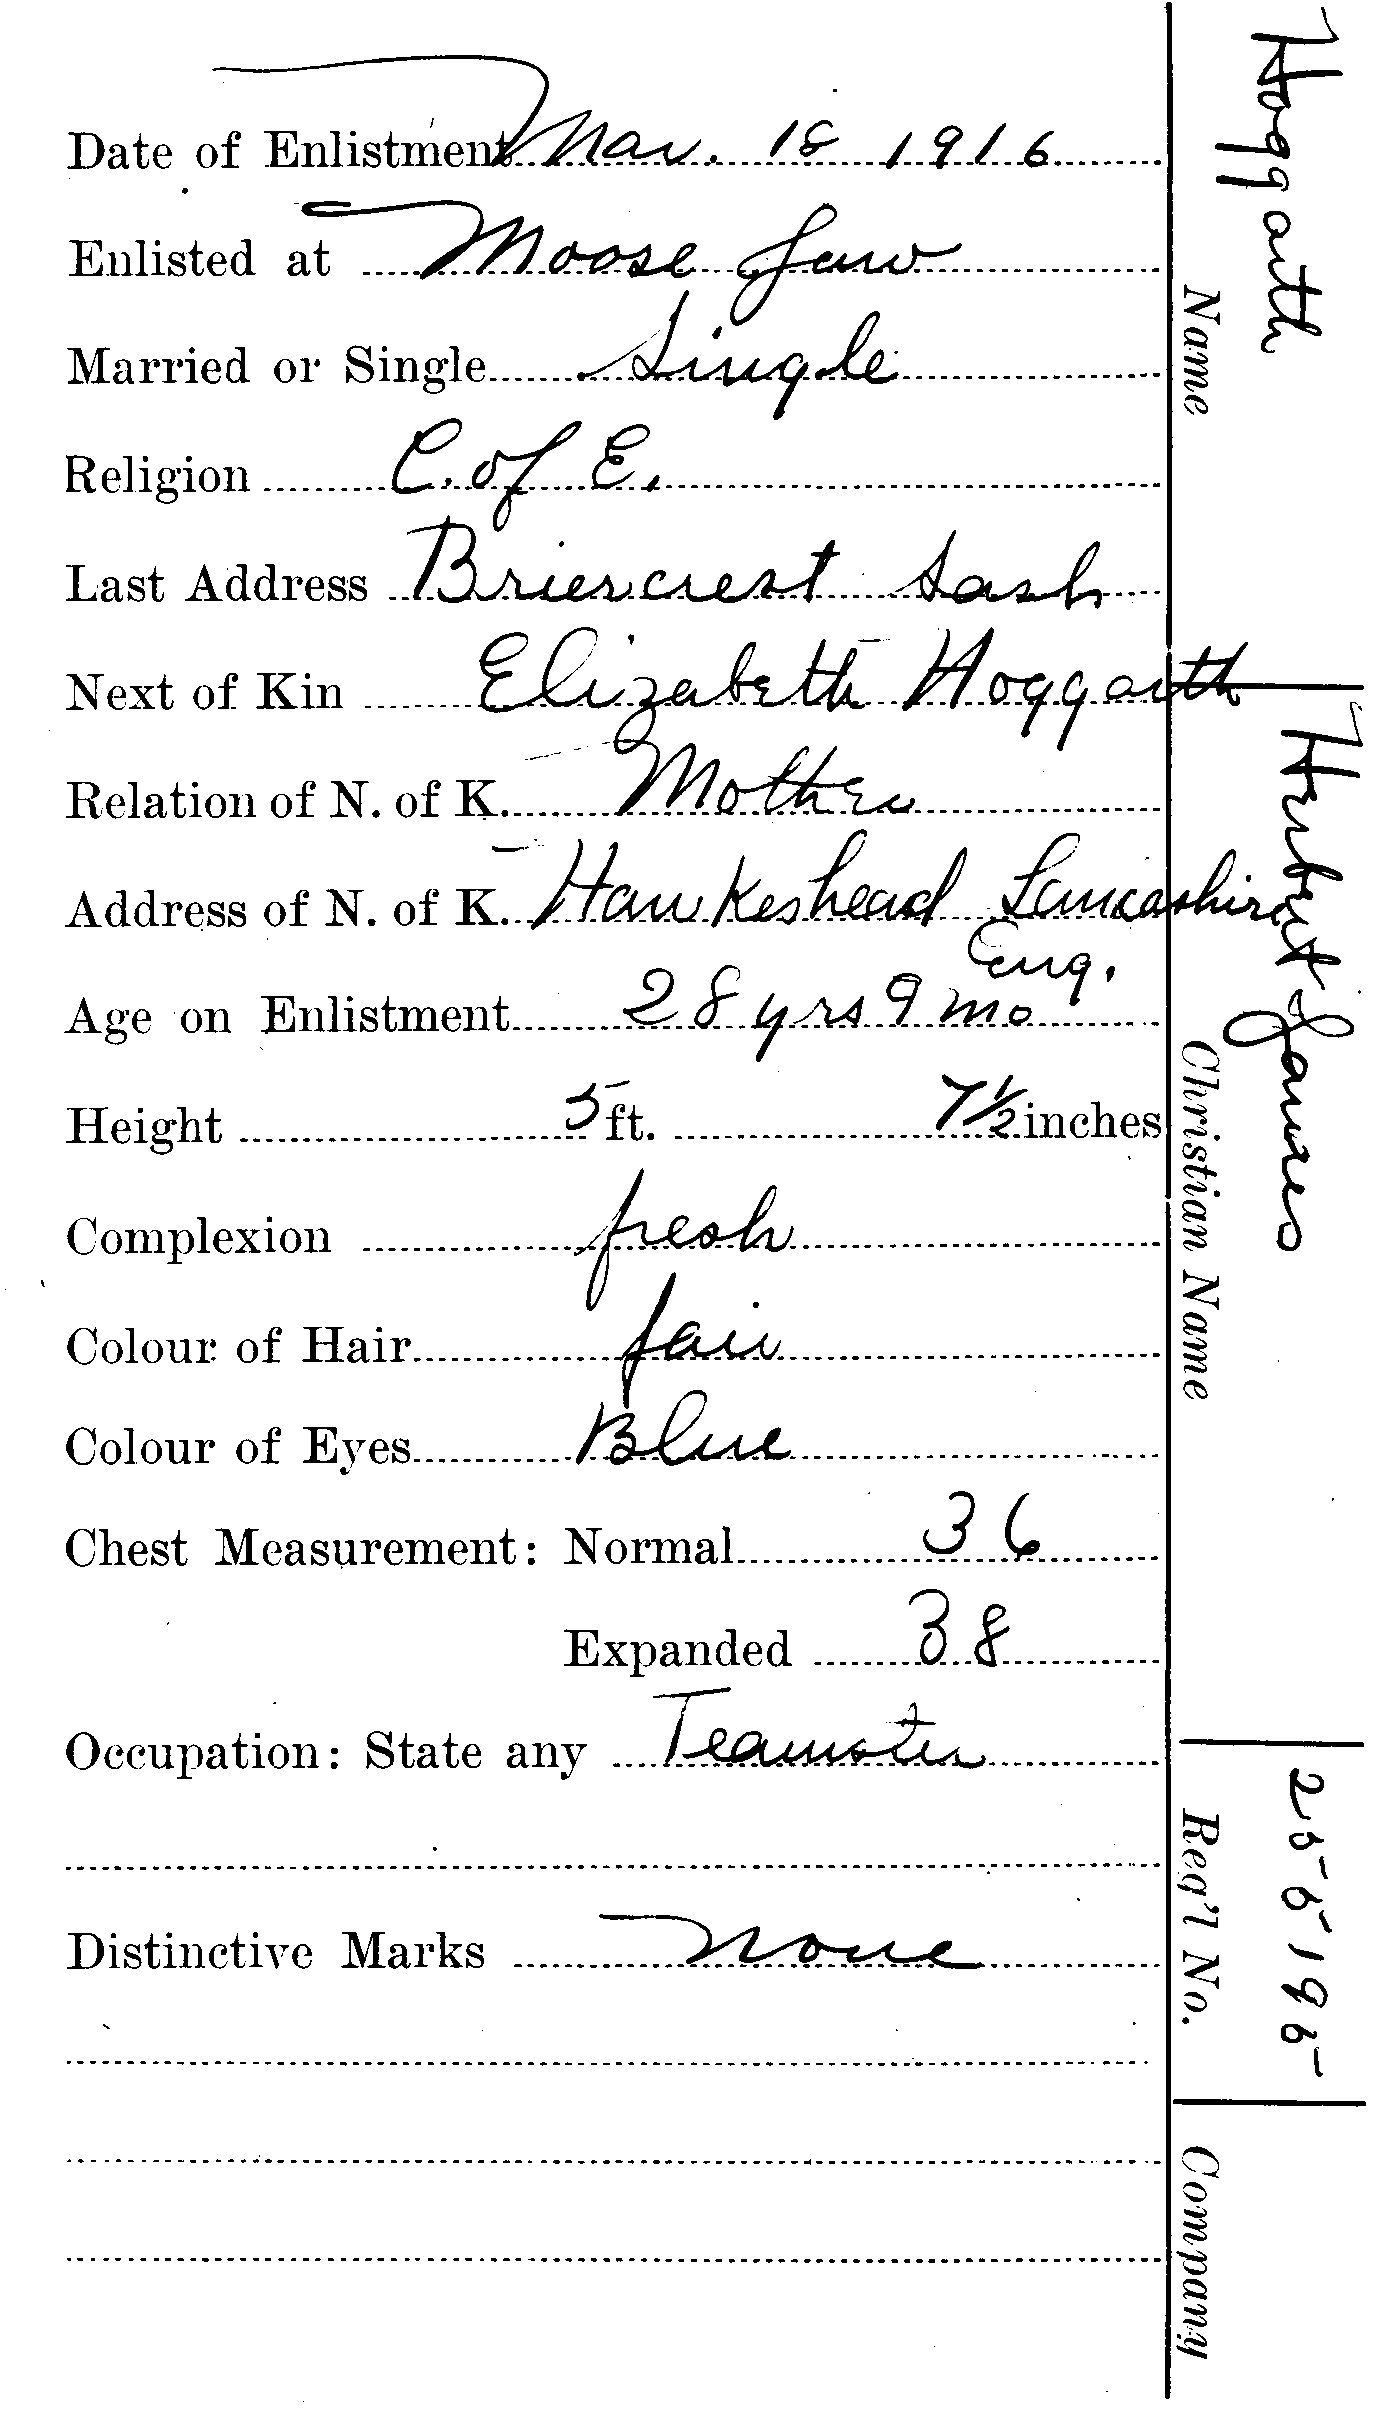 Date of Enlistment Mar. 18 1916
Enlisted at Moose Jaw
Married or Single Single
Religion C. of E.
Last Address Briercrest Sask
Next of Kin Elizabeth Hoggarth
Relation of N. of K. Mother
Address of N. of K. Hawkeshead Lancashire
Eng.
Age on Enlistment 28 yrs 9 mo
Height 5 ft. 7½ inches
Complexion fresh
Colour of Hair fair
Colour of Eyes Blue
Chest Measurement: Normal 36
Expanded 38
Occupation: State any Teamster
Distinctive Marks None
Hoggarth
Name
Herbert James
Christian Name
255195
Reg'l No.
Company